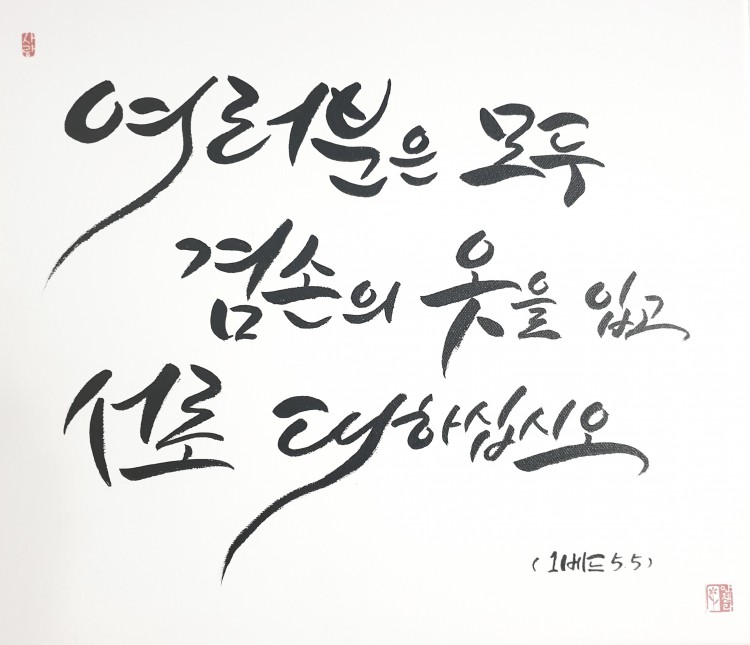 사랑
여러분은 모두
겸손의 옷을 입고
서로 대하십시오
(1베드 5.5)